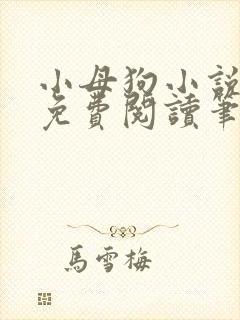 小母狗小說
免費閱讀筆
馬雪梅